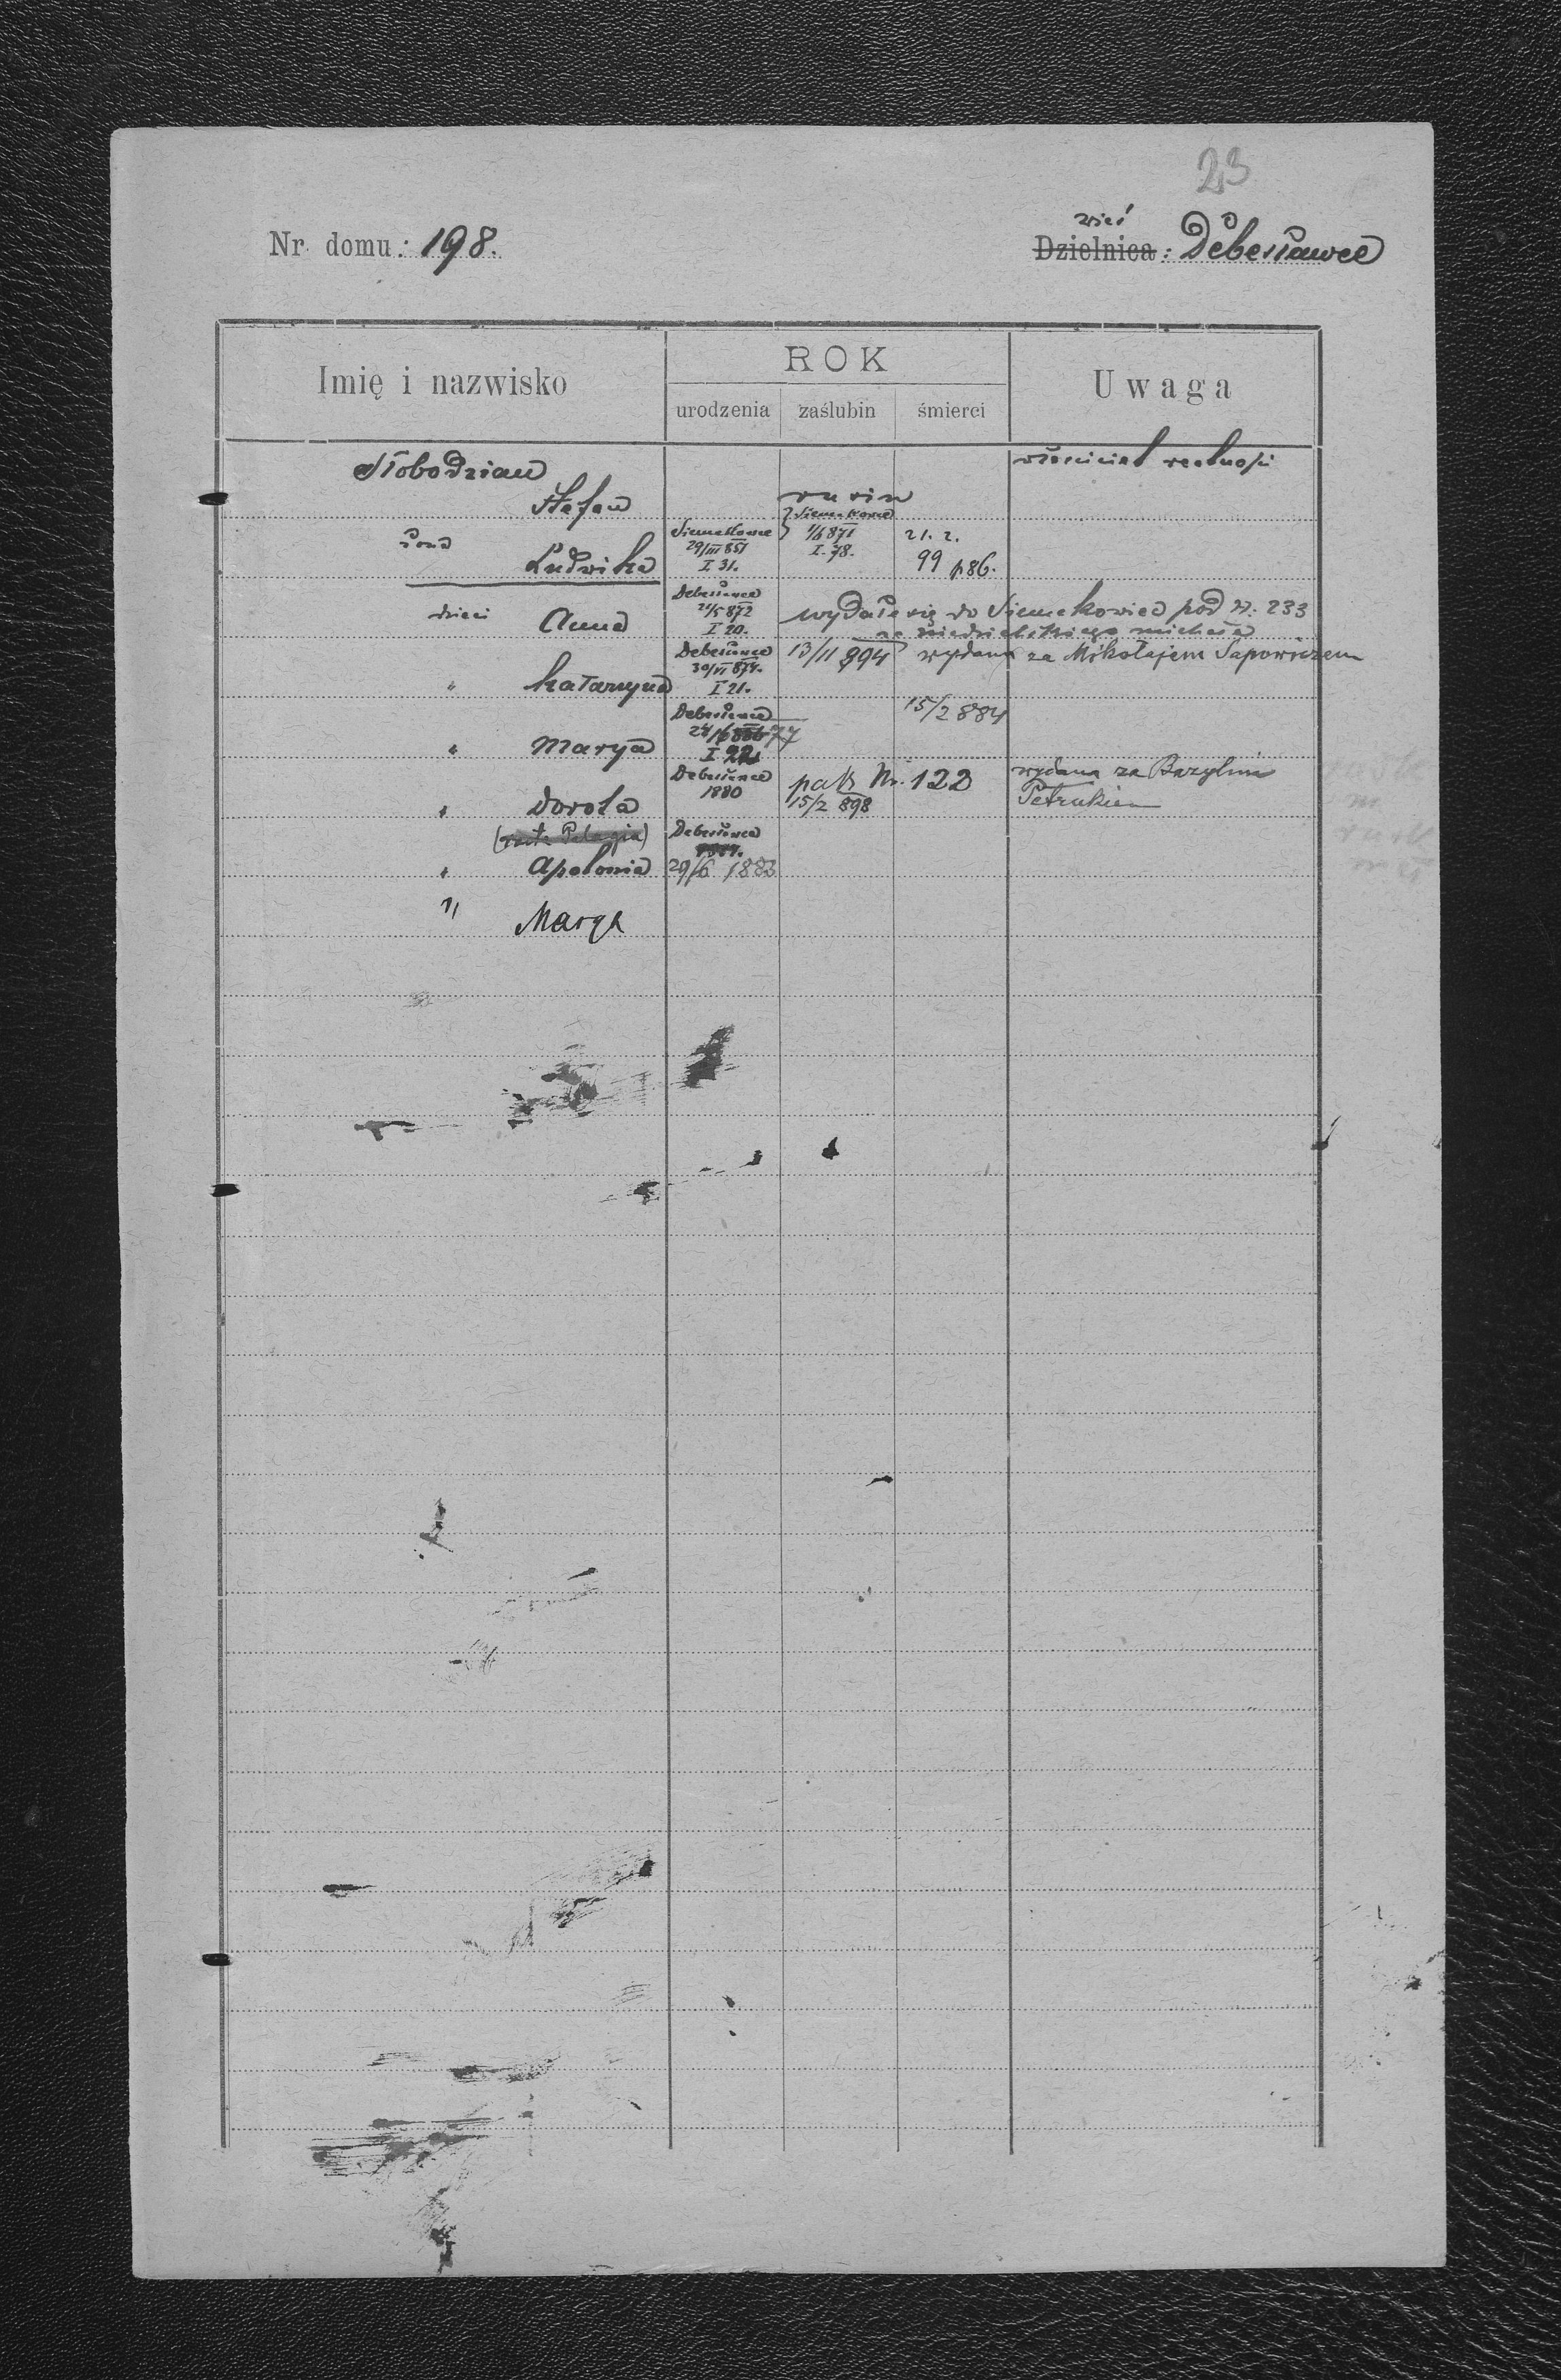 23
Nr. domu: 198.
wieś
Dzielnica: Debesławce
Imię i nazwisko
ROK
urodzenia
zaślubin
śmierci
Uwaga
Słobodzian
właściciel realności
Stefan
rusin
żona
Ludwika
Siemakowce
29/III 851
I 31.
Siemakowce
1/6 871
I. 78.
21. 2.
99 p86.
dzieci
Anna
Debesławce
24/5 872
I 20.
wydała się do Siemakowiec pod N. 233
za Niedzielskiego Michała
" Katarzyna
Debesławce
30/VI 874.
I 21.
13/11 894 wydana za Mikołajem Sapowiczem
" Marya
Debesławce
77
15/2 884
" Dorota
Debesławce
1880
patrz Nr. 122
15/2 898
wydana za Bazylim
Petrukiem
Pelagia)
" Apolonia
Debesławce
29/6 1883
" Marya